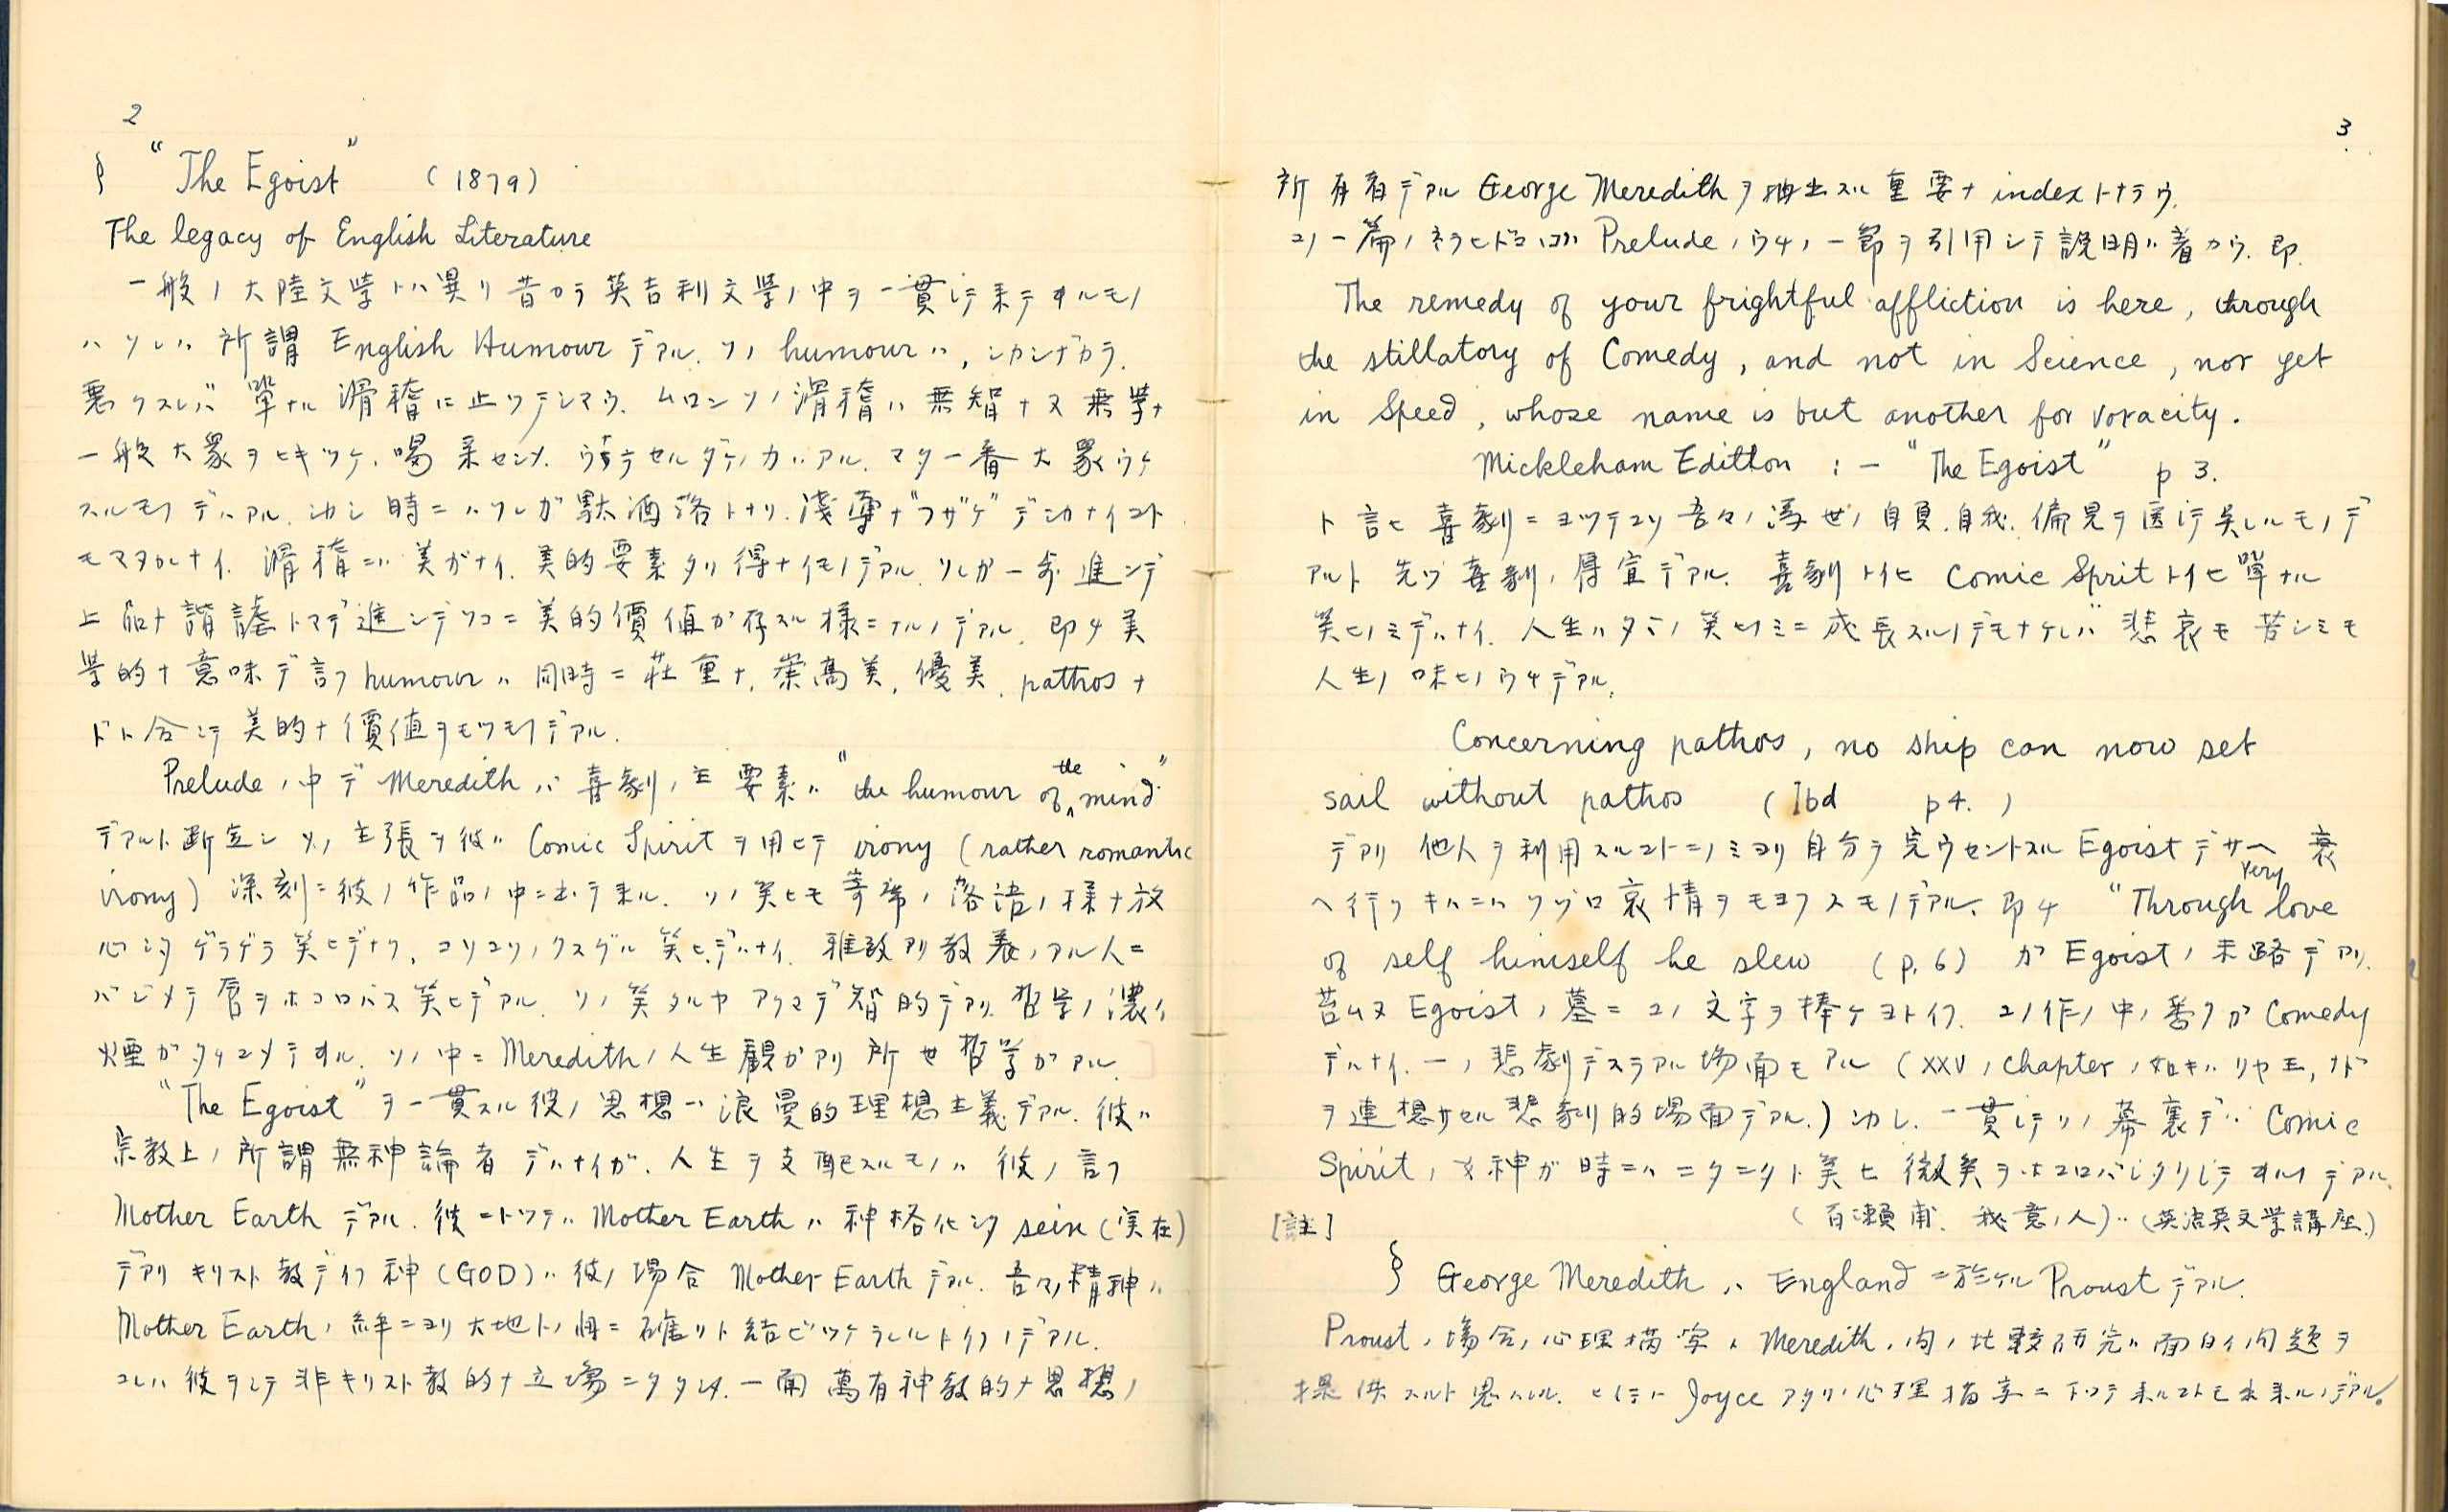 2
§ "The Egoist" (1879)
The legacy of English Literature
一般ノ大陸文学トハ異リ昔カラ英吉利文學ノ中ヲ一貫シテ来テオルモノ
ハソレハ所謂 English Humour デアル. ソノ humour ハ, シカシナガラ,
悪クスレバ單ナル滑稽に止ツテシマウ. ムロンソノ滑稽ハ無智ナヌ無學ナ
一般大衆ヲヒキツケ、喝采センメ. ウナラセルダケノカハアル. マタ一番大衆ウケ
スルモノデハアル. 沕シ時ニハソレガ駄洒落トナリ. 浅薄ナ"フザケ"デシカナイコト
モマヌカレナイ. 滑稽ニハ美ガナイ. 美的要素タリ得ナイモノデアル. ソレガ一歩進ンデ
上品ナ諧謔トマデ進ンデソコニ美的價値ガ存スル様ニナルノデアル. 即チ美
学的ナ意味デ言フ humour ハ同時ニ荘重ナ, 崇高美, 優美, pathos ナ
ドト合シテ美的ナ價値ヲモツモノデアル.
Prelude ノ中デ Meredith ハ喜劇ノ主要素ハ "the humour of the mind"
デアルト断定シソノ主張ヲ彼ハ Comic Spirit ヲ用ヒテ irony (rather romantic
irony) 深刻ニ彼ノ作品ノ中ニ出テ来ル. ソノ笑ヒモ寄席ノ落語ノ様ナ放
心シタゲラゲラ笑ヒデナク, コソコソノクスグル笑ヒデハナイ. 雅致アリ教養ノアル人ニ
ハジメテ唇ヲホコロバス笑ヒデアル. ソノ笑タルヤアクマデ智的デアリ. 哲学ノ濃イ
煙ガタチコメテオル. ソノ中ニ Meredith ノ人生觀ガアリ所世哲学ガアル.
"The Egoist" ヲ一貫スル彼ノ思想ハ浪曼的理想主義デアル. 彼ハ
宗教上ノ所謂無神論者デハナイガ. 人生ヲ支配スルモノハ彼ノ言フ
Mother Earth デアル. 彼ニトツテハ Mother Earth ハ神格化シタ sein (実在)
デアリキリスト教デイフ神 (GOD) ハ彼ノ場合 Mother Earth デアル. 吾々ノ精神ハ
Mother Earth ノ絆ニヨリ大地トノ間ニ確リト結ビツケラレルトイフノデアル.
コレハ彼ヲシテ非キリスト教的ナ立場ニタタシメ. 一面萬有神教的ナ思想ノ
3
所有者デアル George Meredith ヲ抽出スル重要ナ index トナラウ.
コノ一篇ノネラヒドコロハ Prelude ノウチノ一節ヲ引用シテ説明ハ着カウ. 即
The remedy of your frightful affliction is here, through
the stillatory of Comedy, and not in Science, nor yet
in Speed, whose name is but another for voracity.
Mickleham Edition : — "The Egoist" p 3.
ト言ヒ喜劇ニヨツテコソ吾々ノ浮世ノ自負. 自我. 偏見ヲ医シテ呉レルモノデ
アルト先ヅ喜劇ノ得宣デアル. 喜劇トイヒ Comic Sprit トイヒ單ナル
笑ヒノミデハナイ. 人生ハタダノ笑ヒノミニ成長スルノデモナケレバ悲哀モ苦シミモ
人生ノ味ヒノウチデアル.
Concerning pathos, no ship can now set
sail without pathos (Ibd p4.)
デアリ他人ヲ利用スルコトニノミヨリ自分ヲ完ウセントスル Egoist デサヘ衰
ヘ行クキハニハソゾロ哀情ヲモヨフスモノデアル. 即チ "Through very love
of self himself he slew (p. 6) ガ Egoist ノ末路デアリ.
苔ムス Egoist ノ墓ニコノ文字ヲ捧ゲヨトイフ. コノ作ノ中ノ番クガ Comedy
デハナイ. 一ノ悲劇デスラアル場面モアル (XXV ノ chapter ノ如キハリヤ王, ナド
ヲ連想サセル悲劇的場面デアル.) 沕シ. 一貫シテソノ幕裏デハ Comic
Spirit ノ女神ガ時ニハニタニタト笑ヒ微笑ヲホコロバシタリシテオルノデアル.
(百瀬甫. 我意ノ人)‥(英語英文学講座)
[註]
§ George Meredith ハ England ニ於ケル Proust デアル.
Proust ノ場合ノ心理描写ト Meredith ノ間ノ比較研究ハ面白イ問題ヲ
提供スルト思ハレル. ヒイテハ Joyce アタリノ心理描写ニ下ツテ来ルコトモ出来ルノデアル。